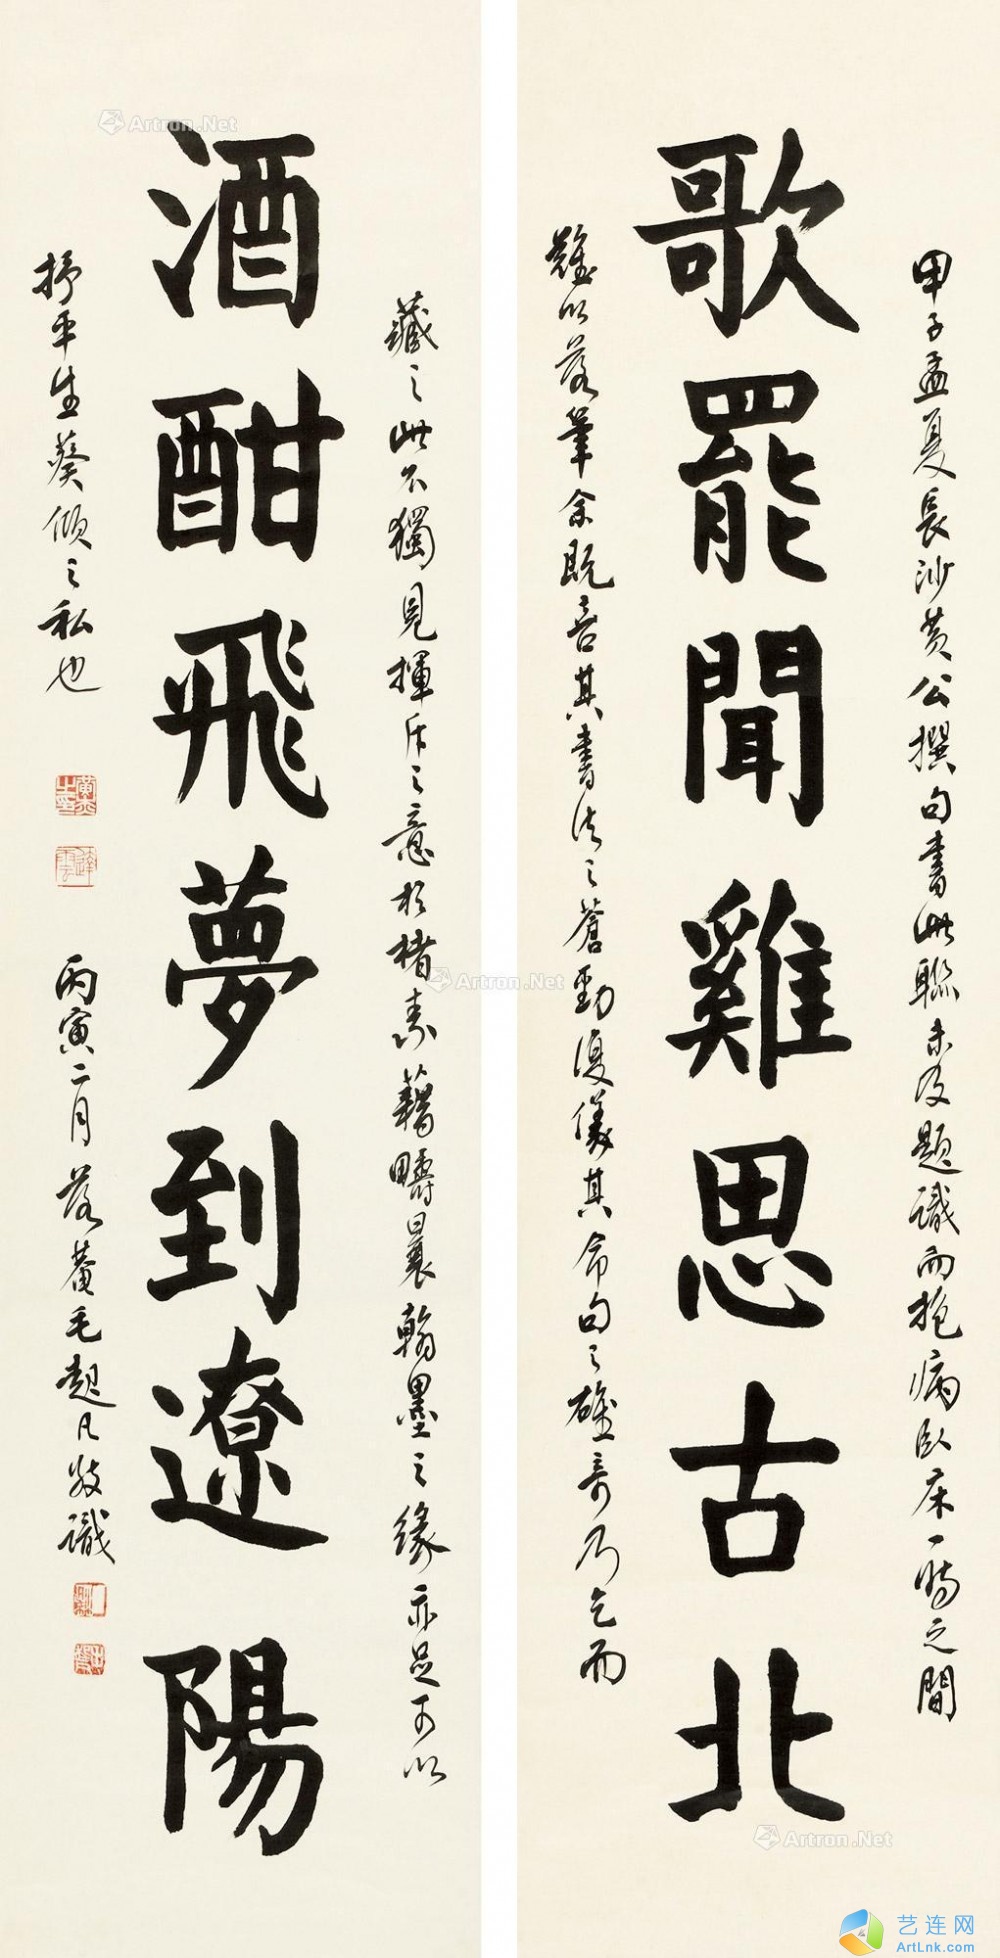 歌罷聞雞思古北
酒酣飛夢到遼陽
甲子孟夏長沙黄公撰句書此聯未及題識而抱病卧床一時之間
難以落筆余既喜其書法之蒼勁復儀其命句之雄奇乃乞而
藏之此不獨見揮斥之意於楮素藉疇曩翰墨之緣亦足可以
抒平生葵傾之私也
丙寅二月落菴毛起凡敬識
Artron.Net
Artron.Net
Artron.Net
艺连网
ArtLnk.com